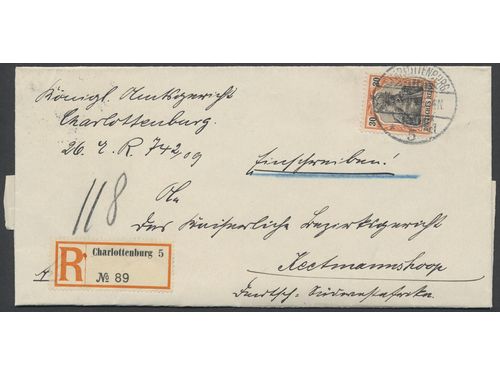 Königl. Amtsgericht
Charlottenburg.
CHARLOTTENBURG
30 30
DEUTSCHES REICH
5
26. 7. R. 742/09
Einschreiben!
118
An
das Kaiserliche Bezirksgericht
R Charlottenburg 5
№ 89
Keetmannshoop
Deutsch-Südwestafrika.